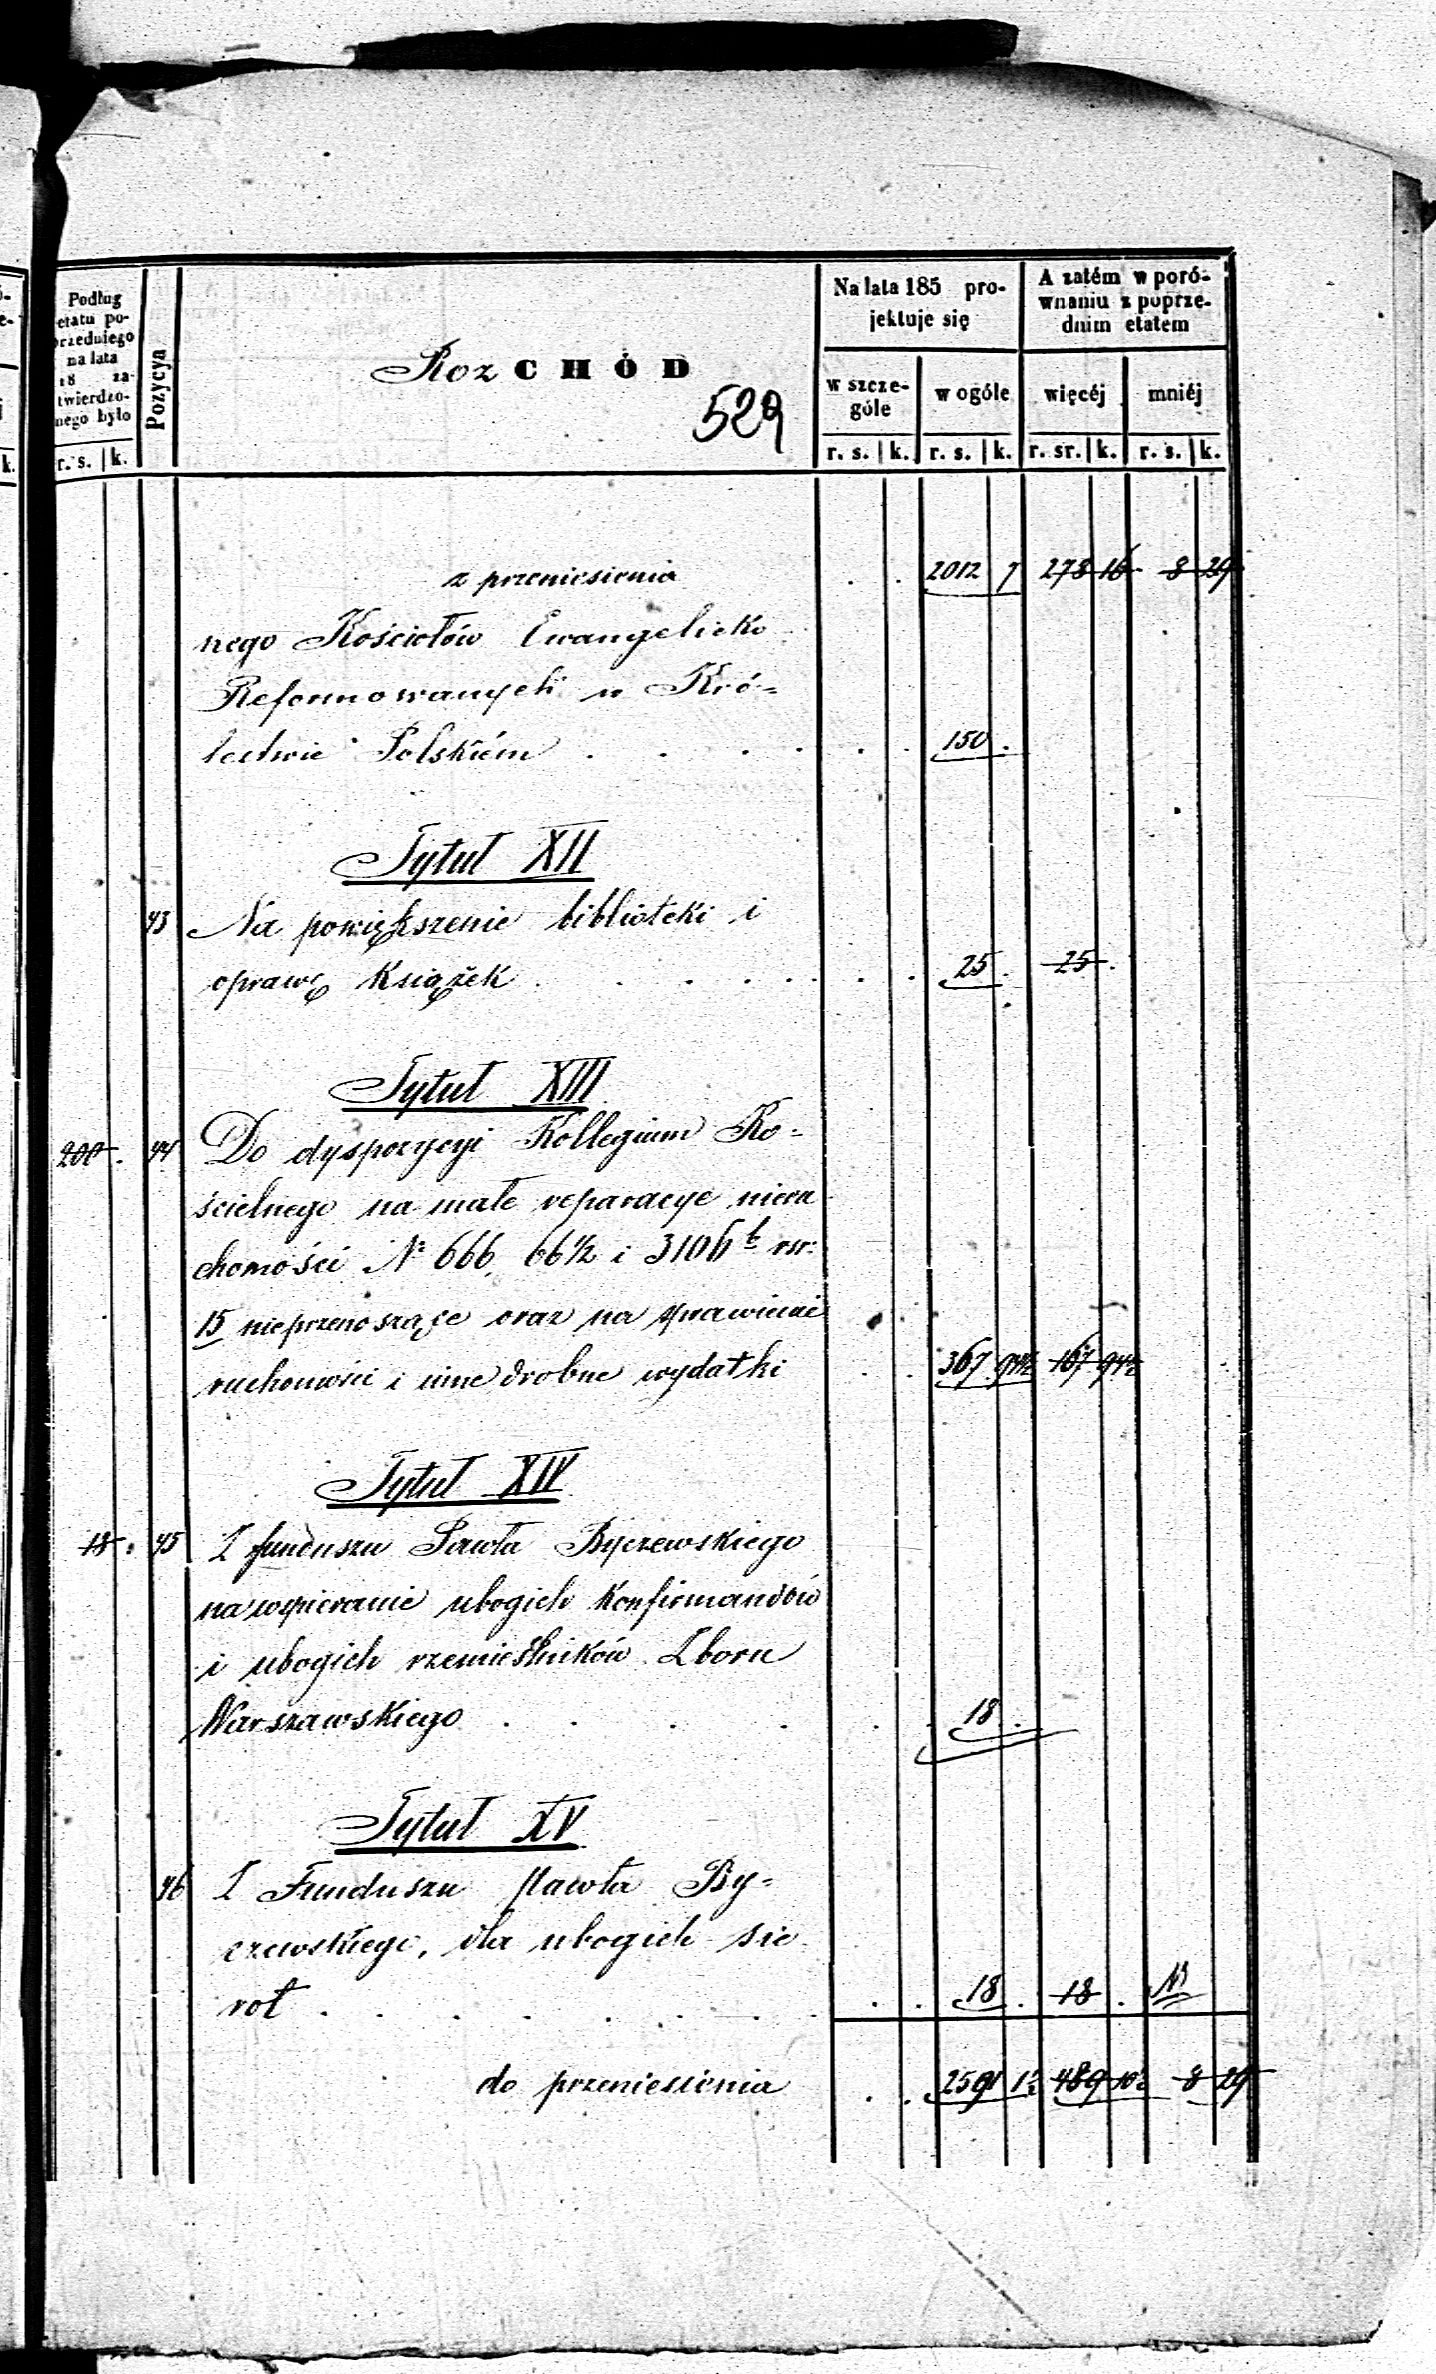 Podług
etatu po-
przedniego
na lata
18 za-
twierdzo-
nego było
r. s. k.
Pozycya
RozCHÓD
529
Na lata 185 pro-
jektuje się
w szcze-
góle
w ogóle
r. s. k. r. s. k.
A zatém w poró-
wnaniu z poprze-
dnim etatem
więcéj mniéj
r. sr. k. r. s. k.
z przeniesienia . . 2012 7 278 16 8 29
nego Kościołów Ewangelicko
Reformowanych w Kró=
lestwie Polskiém . . . . . . 150 .
Tytuł XII
43 Na powiększenie biblioteki i
oprawę książek . . . . . . . 25 . 25 .
Tytuł XIII
200 . 44 Do dyspozycyi Kollegium Ko=
ścielnego na małe reparacye nieru
chomości № 666, 66½ i 3106 b rsr:
15 nieprzenoszące oraz na sprawienie
ruchomości i inne drobne wydatki . . 367 94½ 167 94½
Tytuł XIV
18 . 45 Z funduszu Pawła Byczewskiego
na wspieranie ubogich Konfirmandów
i ubogich rzemieślników Zboru
Warszawskiego . . . . . . 18 .
Tytuł XV
46 Z Funduszu Pawła By=
czewskiego, dla ubogich sie
rot . . . . . . . . 18 . 18 .
do przeniesienia . . 2591 1½ 489 10½ 8 29